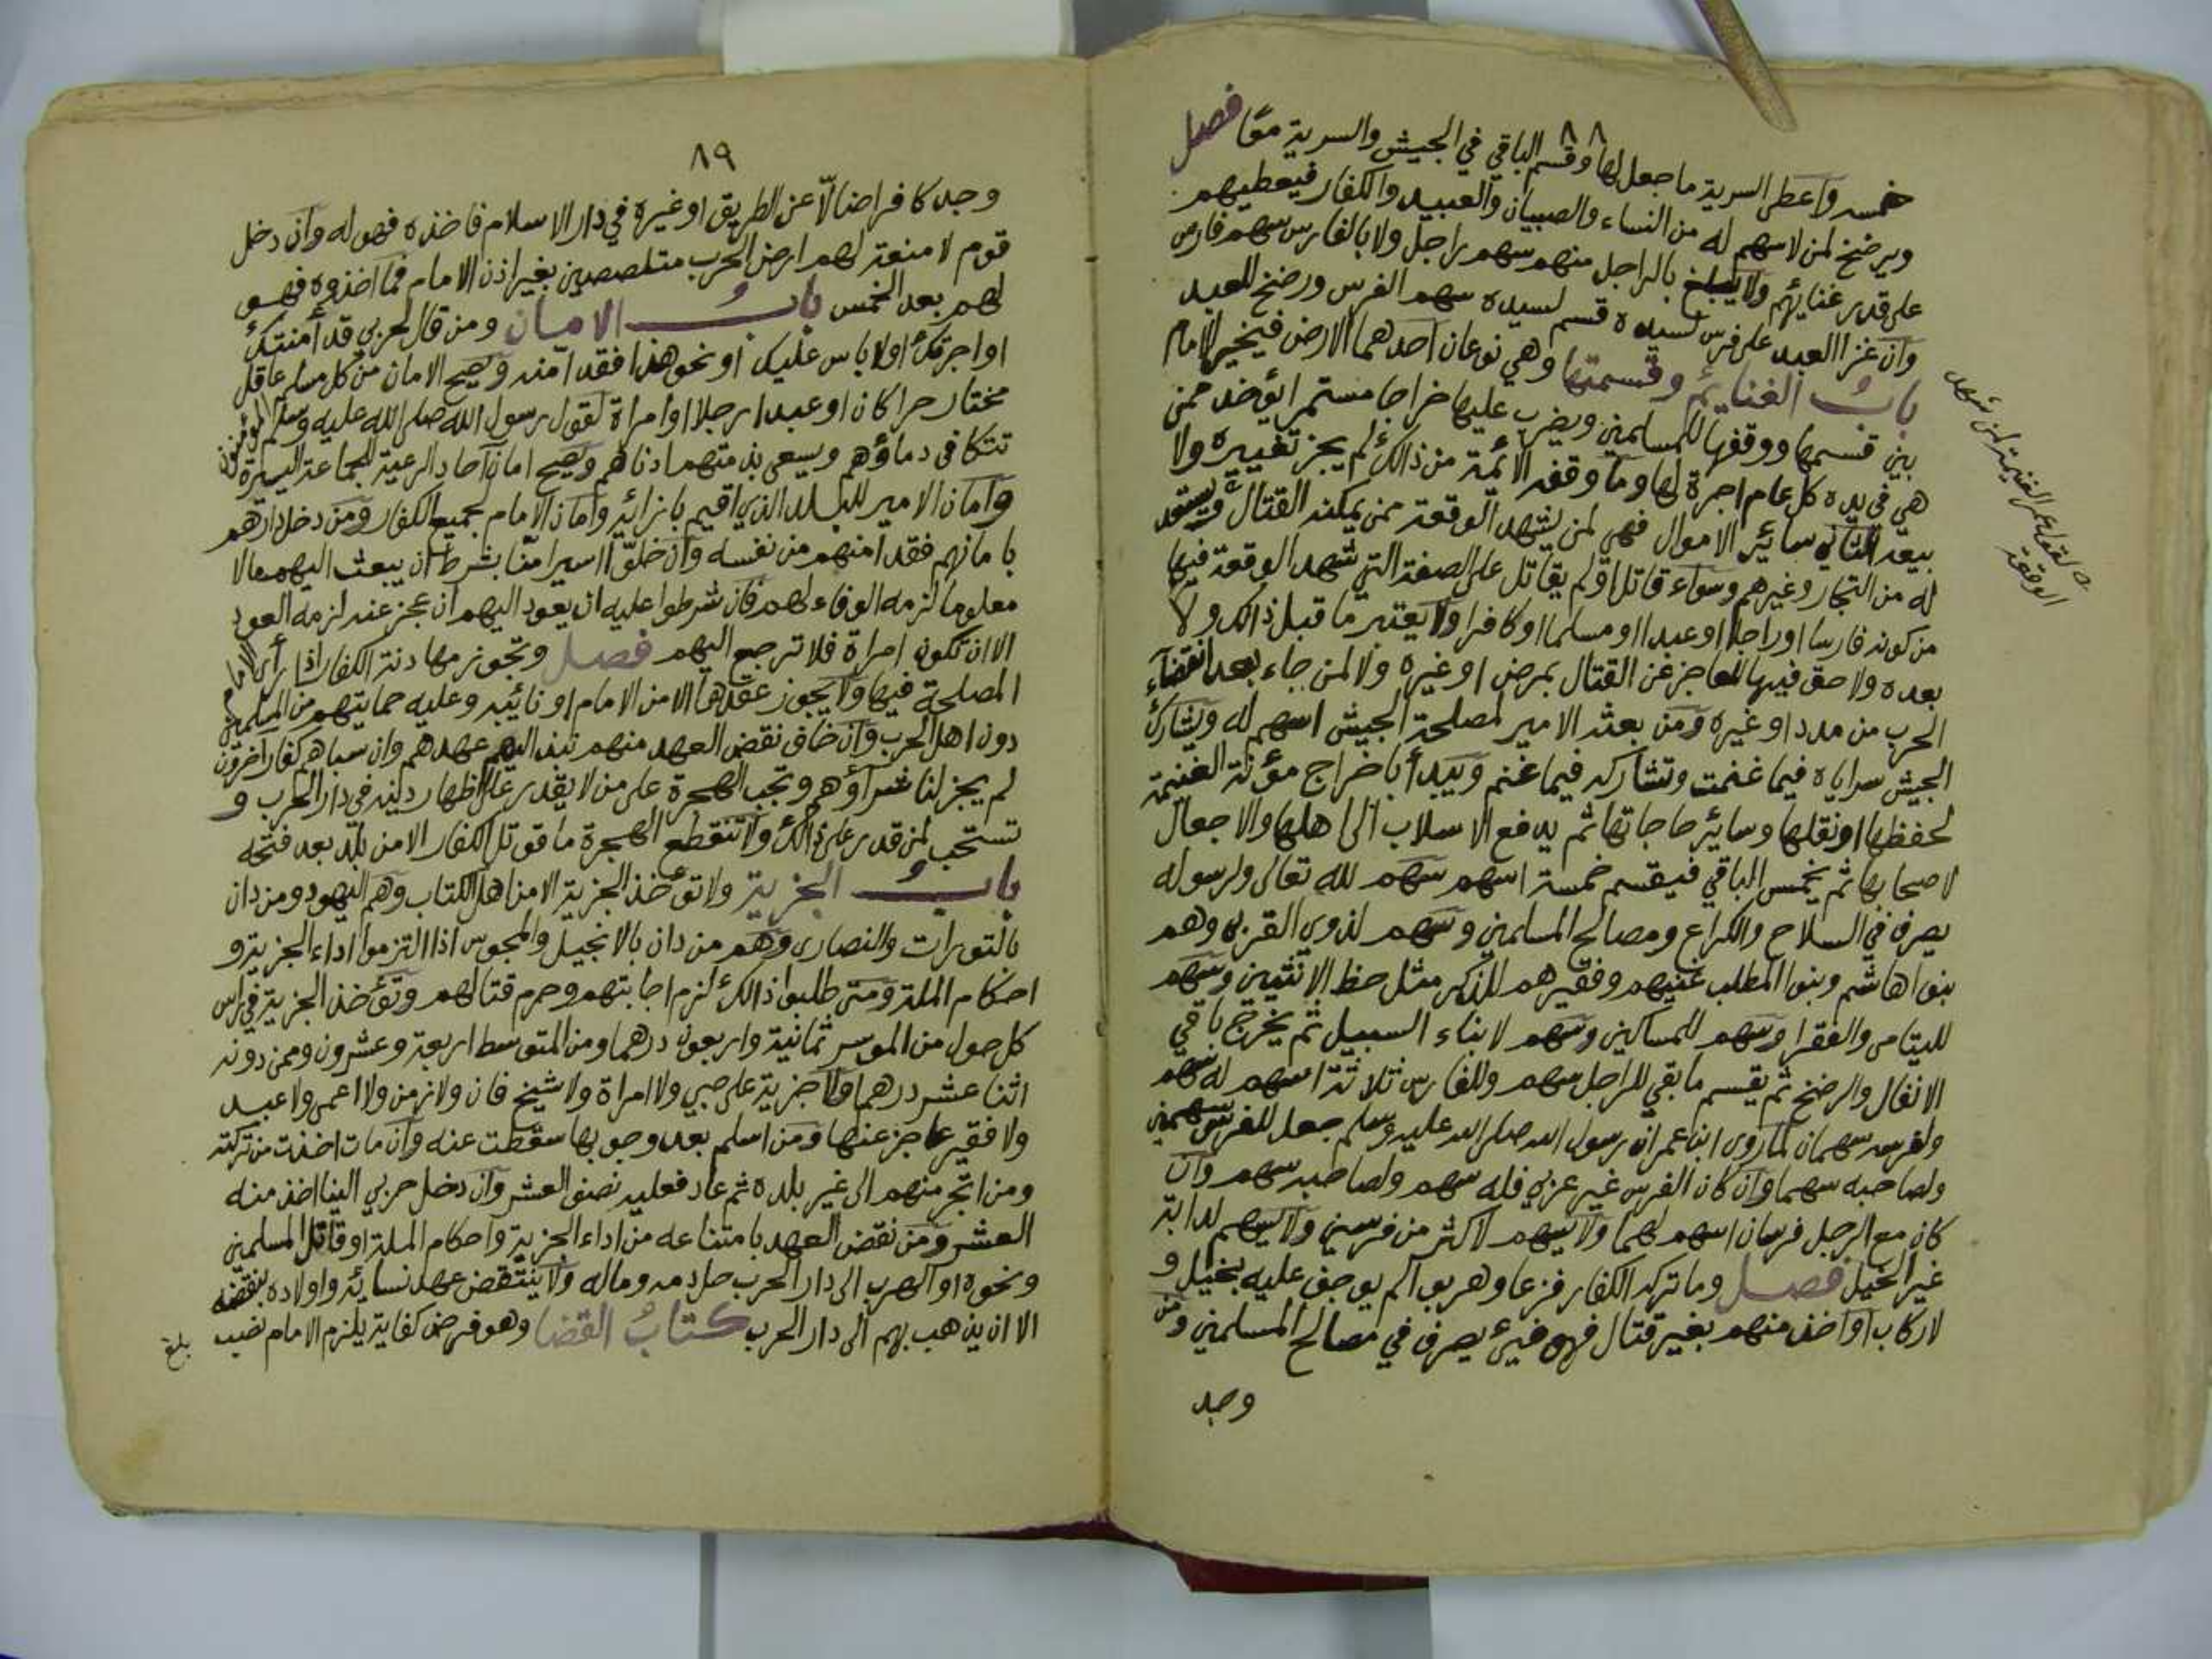 ٨٨
خمسه واعطى السرية ما جعل لها وقسم الباقي في الجيش والسرية معًا فصل
ويرضخ لمن لا سهم له من النساء والصبيان والعبيد والكفار فيعطيهم
على قدر غنائهم ولا يبلغ بالراجل منهم سهم راجل ولا بالفارس سهم فارس
وان غزا العبد على فرس لسيده قسم لسيده سهم الفرس ورضخ للعبد
باب الغنائم وقسمتها وهي نوعان احدهما الارض فيخير الامام
بين قسمها ووقفها للمسلمين ويضرب عليها خراجا مستمرا يؤخذ ممن
هي في يده كل عام اجرة لها وما وقفه الائمة من ذالك لم يجز تغييره ولا
بيعه الثاني سائر الاموال فهي لمن يشهد الوقعة ممن يمكنه القتال ويستعد
له من التجار وغيرهم وسواء قاتل اولم يقاتل على الصفة التي شهد الوقعة فيها
من كونه فارسا او راجلا او عبدا او مسلما او كافرا ولا يعتبر ما قبل ذالك ولا
بعده ولا حق فيها للعاجز عن القتال بمرض او غيره ولا لمن جاء بعد انقضاء
الحرب من مدد او غيره ومن بعثه الامير لمصلحة الجيش اسهم له ويشارك
الجيش سراياه فيما غنمت وتشاركه فيما غنم ويبدأ باخراج مؤنة الغنيمة
لحفظها او نقلها وسائر حاجاتها ثم يدفع الاسلاب الى اهلها والاجعال
لاصحابها ثم يخمس الباقي فيقسم خمسة اسهم سهم لله تعالى ولرسوله
يصرف في السلاح والكراع ومصالح المسلمين وسهم لذوي القربى وهم
بنوا هاشم وبنوا المطلب غنيهم وفقيرهم للذكر مثل حظ الانثيين وسهم
لليتامى والفقرا وسهم للمساكين وسهم لابناء السبيل ثم يخرج باقي
الانفال والرضخ ثم يقسم ما بقي للراجل سهم وللفارس ثلاثة اسهم له سهم
ولفرسه سهمان لما روى ابن عمر ان رسول الله صلى الله عليه وسلم جعل للفرس سهمين
ولصاحبه سهما وان كان الفرس غير عربي فله سهم ولصاحبه سهم وان
كان مع الرجل فرسان اسهم لهما ولا يسهم لاكثر من فرسين ولا يسهم لدابة
غير الخيل فصل وما تركه الكفار فزعا وهربوا لم يوجف عليه بخيل و
لا ركاب او اخذ منهم بغير قتال فهو فيئ يصرف في مصالح المسلمين ومن
وجد
لقول عمر الغنيمة لمن شهد
الوقعة
٨٩
وجد كافرا ضالّا عن الطريق او غيره في دار الاسلام فاخذه فهو له وان دخل
قوم لا منعة لهم ارض الحرب متلصصين بغير اذن الامام فما اخذوه فهو
لهم بعد الخمس باب الامان ومن قال لحربي قد أمنتك
او اجرتك او لا باس عليك او نحو هذا فقد آمنه ويصح الامان من كل مسلم عاقل
مختار حرا كان او عبدا رجلا او امراة لقول رسول الله صلى الله عليه وسلم المؤمنون
تتكافى دماؤهم ويسعى بذمتهم ادناهم ويصح امان آحاد الرعية للجماعة اليسيرة
وامان الامير للبلد الذي اقيم بازائه وامان الامام لجميع الكفار ومن دخل دارهم
بامانهم فقد امنهم من نفسه وان خلوا اسيرا منا بشرط ان يبعث اليهم مالا
معلوما لزمه الوفاء لهم فان شرطوا عليه ان يعود اليهم ان عجز عنه لزمه العود
الا ان تكون امراة فلا ترجع اليهم فصل وتجوز مهادنة الكفار اذا رأى الامام
المصلحة فيها ولا يجوز عقدها الا من الامام او نائبه وعليه حمايتهم من المسلمين
دون اهل الحرب وان خاف نقض العهد منهم نبذ اليهم عهدهم وان سباهم كفار آخرون
لم يجز لنا شراؤهم وتجب الهجرة على من لا يقدر على اظهار دينه في دار الحرب و
تستحب لمن قدر على ذالك ولا تنقطع الهجرة ما قوتل الكفار الا من بلد بعد فتحه
باب الجزية ولا تؤخذ الجزية الا من اهل الكتاب وهم اليهود ومن دان
بالتورات والنصارى وهم من دان بالانجيل والمجوس اذا التزموا اداء الجزية و
احكام الملة ومتى طلبوا ذالك لزم اجابتهم وحرم قتالهم وتؤخذ الجزية في راس
كل حول من الموسر ثمانية واربعون درهما ومن المتوسط اربعة وعشرون وممن دونه
اثنا عشر درهما ولا جزية على صبي ولا امراة ولا شيخ فان ولا زمن ولا اعمى ولا عبد
ولا فقير عاجز عنها ومن اسلم بعد وجوبها سقطت عنه وان مات اخذت من تركته
ومن اتجر منهم الى غير بلده ثم عاد فعليه نصف العشر وان دخل حربي الينا اخذ منه
العشر ومن نقض العهد بامتناعه من اداء الجزية واحكام الملة او قاتل المسلمين
ونحوه او الهرب الى دار الحرب حل دمه وماله ولا ينتقض عهد نسائه واولاده بنقضه
الا ان يذهب بهم الى دار الحرب كتاب القضا وهو فرض كفاية يلزم الامام نصب
بلغ